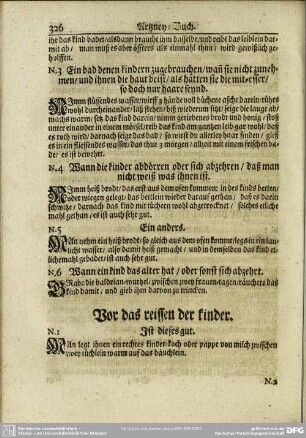 326 Artzney-Buch.
ihr das kind badet/alsdann braucht ihm dasselbe/und reibt das leiblein dar-
mit ab/ man muß es aber öffters als einmahl thun/ wird gewißlich ge-
holffen.
N.3 Ein bad denen kindern zugebrauchen/wañ sie nicht zuneh-
men/und ihnen die haut beist/als hätten sie die mit-esser/
so doch nur haare seynd.
Nimm fliessendes wasser/wirff 3 hände voll büchene asche darein/rührs
wohl durcheinander/laß stehen/biß wiederum
nachs warm/setz das kind darein/nimm geriebenes brodt und honig/
unter einander in einem mörsel/reib das kind am gantzen leib gar wohl/daß
es in ein fliessendes wasser/das thut 3 morgen/allzeit mit einem frischen ba-
de/es ist bewehrt.
N.4 Wann die kinder abdörren oder sich abzehren/daß man
nicht weiß was ihnen ist.
Nimm heiß brodt/das erst aus dem ofen kommen/in des kinds betten/
oder wiegen gelegt/das betlein wieder darauf gethan/daß es darin
schwitze/darnach das kind mit tüchern wohl abgetrocknet/solches etliche
mahl gethan/es ist auch sehr gut.
N.5 Ein anders.
Man nehm ein heiß brodt/so gleich aus dem ofen kommt/legs in ein lau-
licht wasser/also damit heiß gemacht/und in demselben das kind et-
lichemahl gebadet/ist auch sehr gut.
N.6 Wann ein kind das alter hat/oder sonst sich abzehrt.
Grabt die baldrian-wurtzel/zwischen zwey frauen-tägen/räuchert das
kind damit/und gieb ihm darvon zu trincken.
Vor das reissen der kinder.
N.1 Ist dieses gut.
Man legt ihnen ein rechtes kinder-koch oder pappe von milch zwischen
zwey tüchlein warm auf das bäuchlein.
N.2